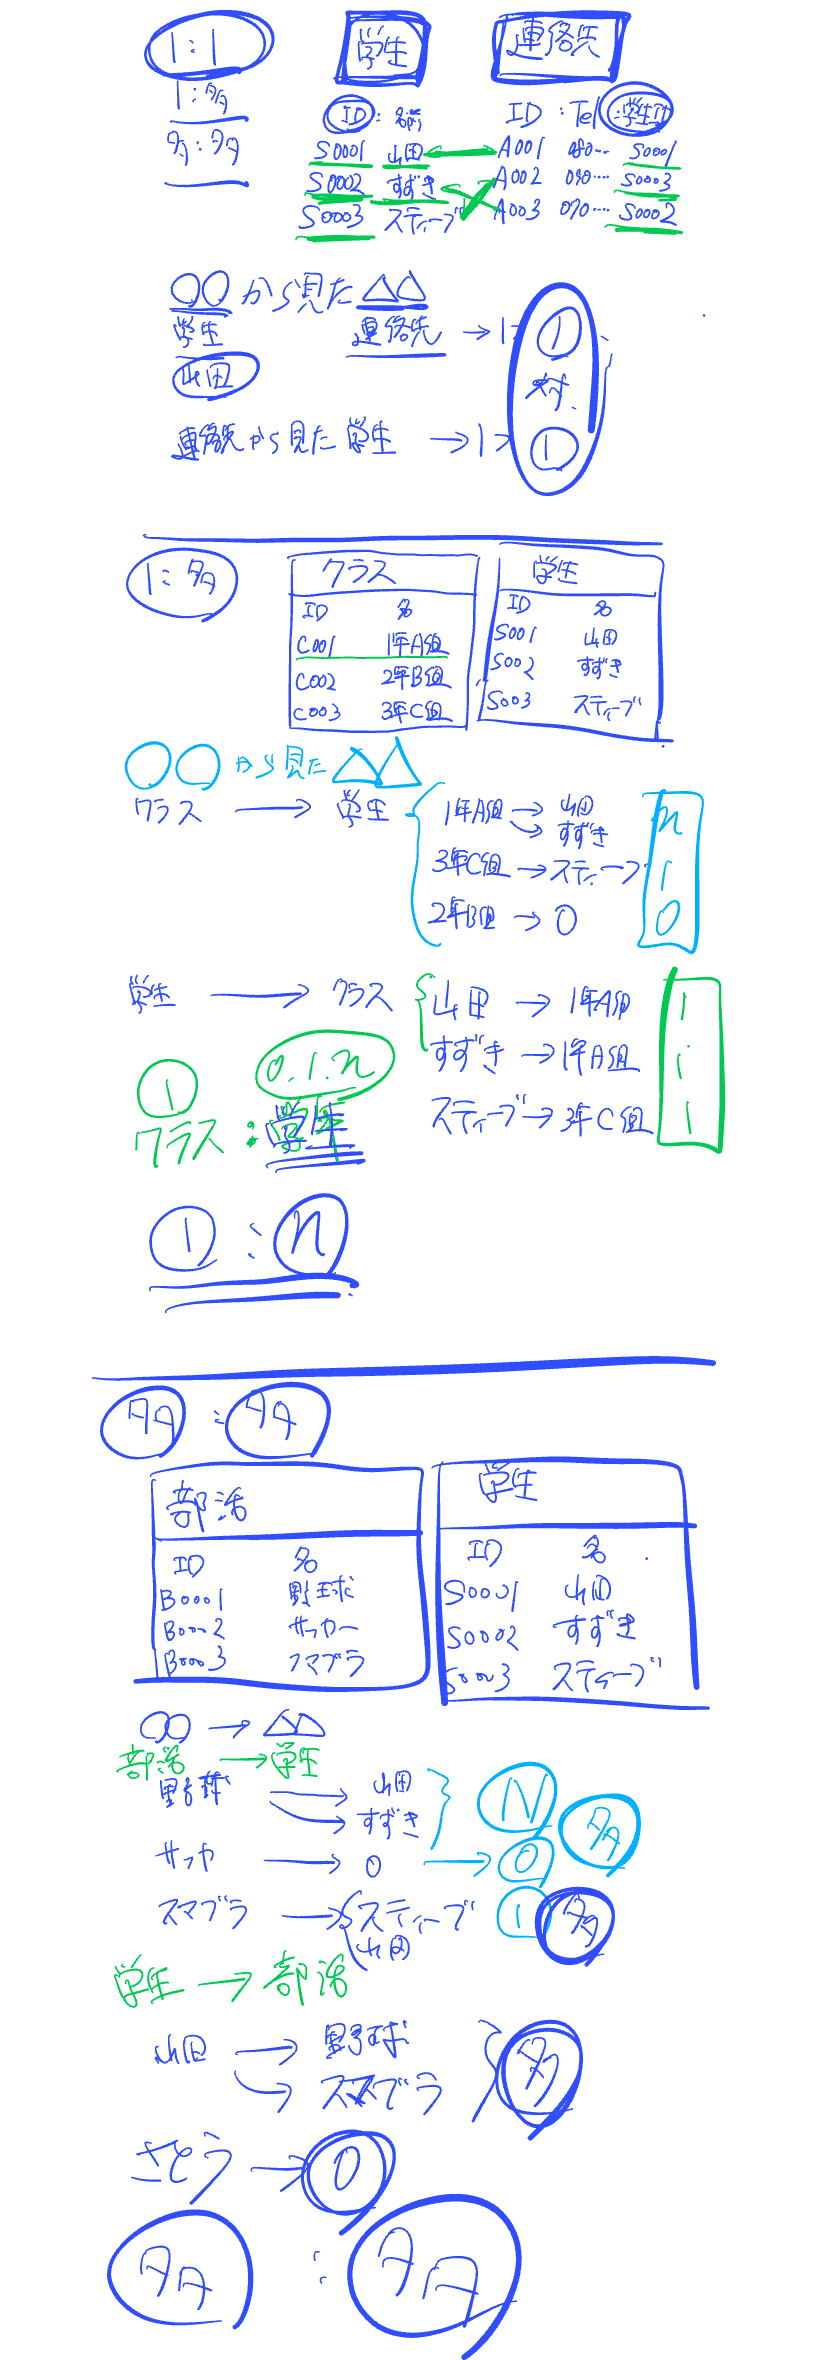 1:1 学生 連絡先
1:多 ID:名前 ID:Tel:学生ID
多:多 S0001 山田 A001 080… S0001
S0002 すずき A002 090… S0003
S0003 スティーブ A003 070… S0002
○○から見た△△
学生 連絡先 →1> 1
山田 対
連絡先から見た学生 →1> 1
1:多 クラス 学生
ID 名 ID 名
C001 1年A組 S001 山田
C002 2年B組 S002 すずき
C003 3年C組 S003 スティーブ
○○から見た△△
クラス → 学生 1年A組 → 山田 n
→ すずき
3年C組 → スティーブ 1
2年B組 → 0 0
学生 → クラス 山田 → 1年A組 1
すずき → 1年A組 1
スティーブ → 3年C組 1
1 0.1.n
クラス:学生
1:n
多:多
部活 学生
ID 名 ID 名
B0001 野球 S0001 山田
B0002 サッカー S0002 すずき
B0003 スマブラ S0003 スティーブ
○○→△△
部活→学生
野球 → 山田 N
→ すずき 多
サッカ → 0 → 0
スマブラ → スティーブ 1 多
山田
学生→部活
山田 → 野球 多
→ スマブラ
さとう → 0
多:多